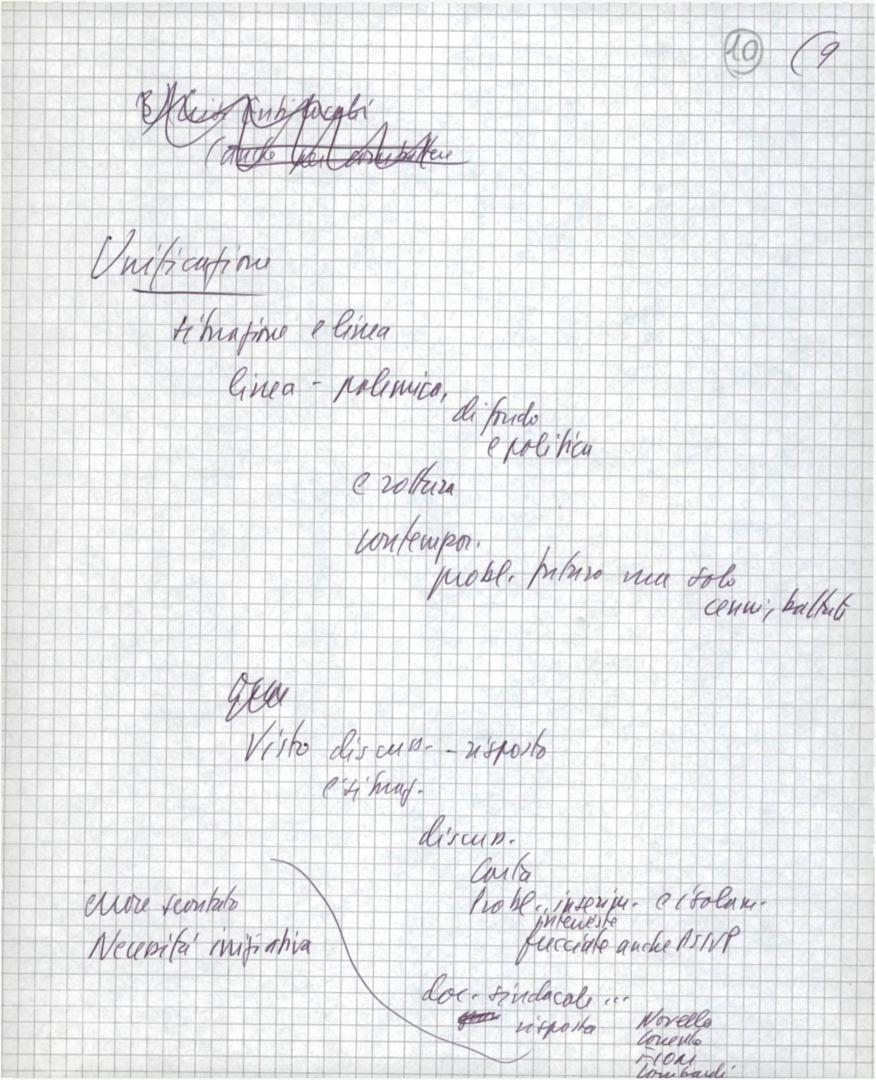 10 (9
Unificazione
situazione e linea
linea - polemica,
di fondo
e politica
e rottura
contempor.
probl. futuro ma solo
cenni, battute
Visto discuss. - risposto
e situaz.
discuss.
Carta
Probl. inserim. e isolam.
interviste
facciate anche PSIUP
errore scontato
Necessità iniziativa
doc. sindacale ...
risposta Novella
FIOM
Lombardi